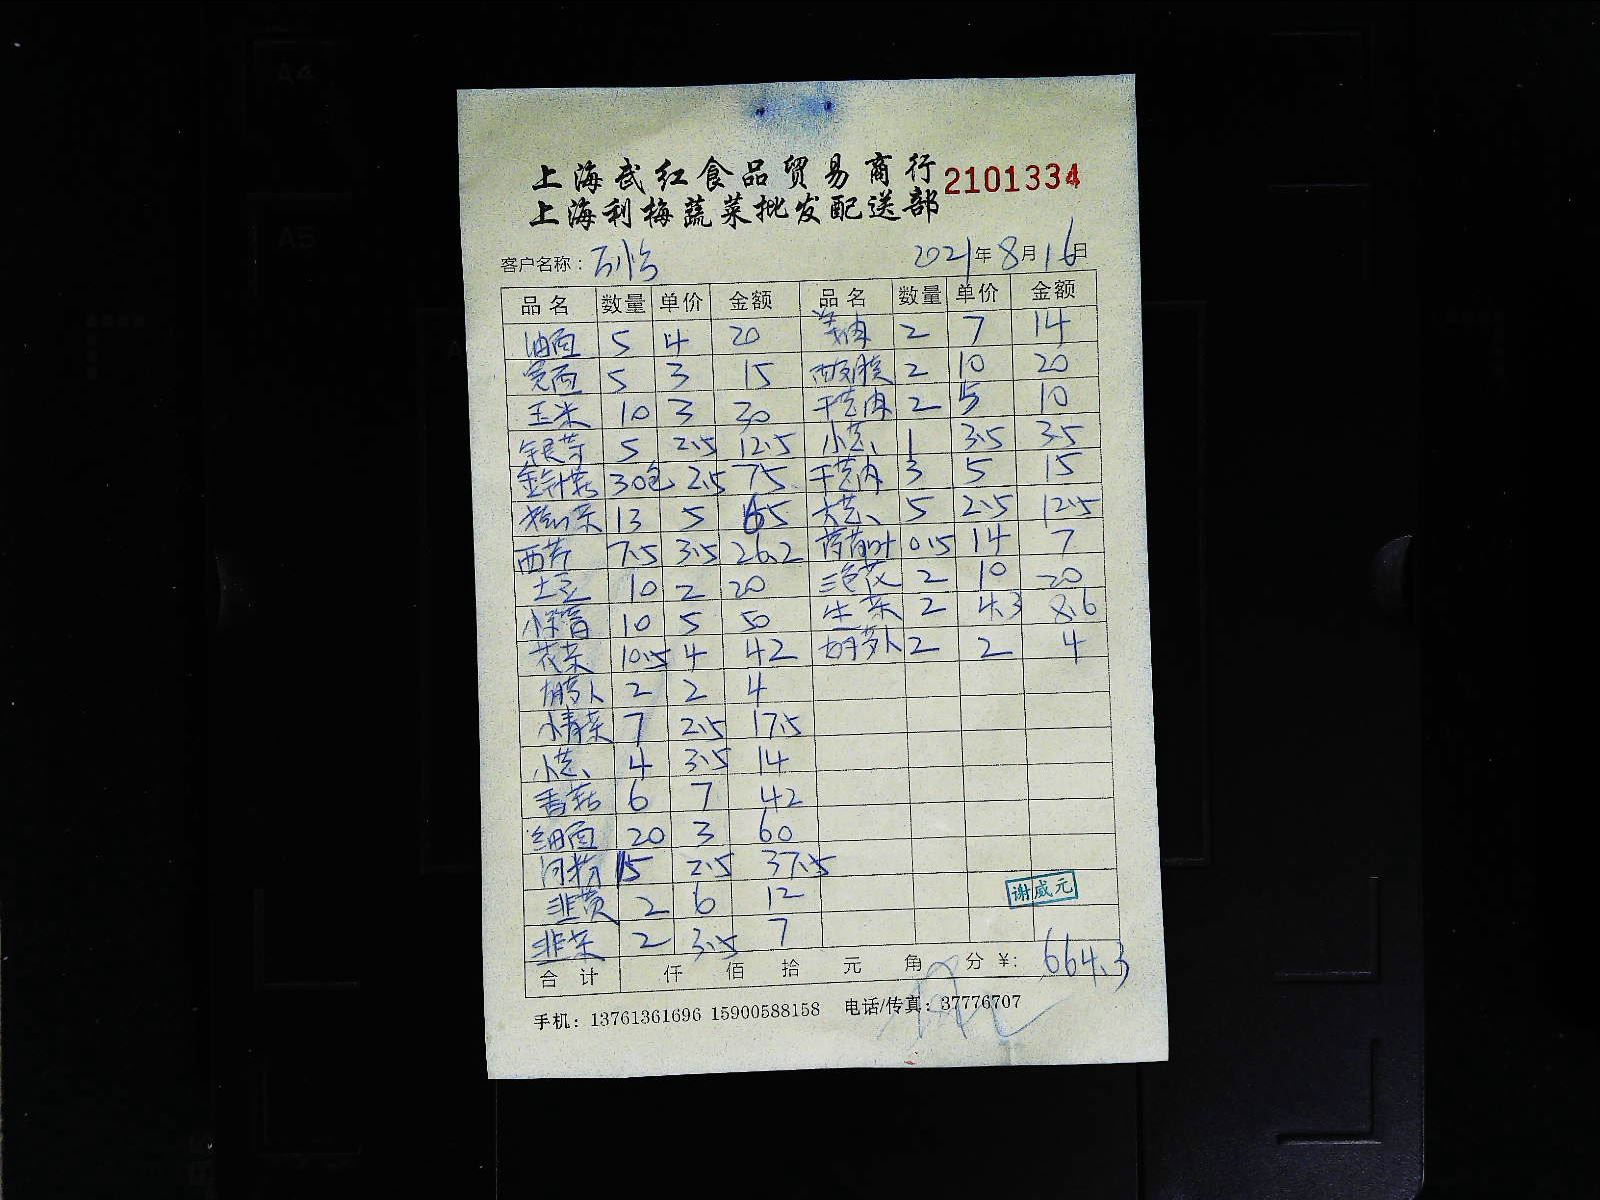 上海武红食品贸易商行
2101334
上海利梅蔬菜批发配送部
客户名称:
2021年8月16日
品名 数量 单价 金额 品名 数量 单价 金额
油面 5 4 20 2 7 14
宽面 5 3 15 2 10 20
玉米 10 3 30 干葱肉 2 5 10
银芽 5 2.5 12.5 小葱 1 3.5 3.5
金针菇 30包 2.5 75 干葱肉 3 5 15
13 5 65 大葱 5 2.5 12.5
西芹 7.5 3.5 26.2 薄荷叶 0.5 14 7
土豆 10 2 20 三色花 2 10 20
10 5 50 生菜 2 4.3 8.6
花菜 10.5 4 42 胡萝卜 2 2 4
胡萝卜 2 2 4
小青菜 7 2.5 17.5
小葱 4 3.5 14
香菇 6 7 42
细面 20 3 60
河粉 15 2.5 37.5
韭黄 2 6 12
韭菜 2 3.5 7
谢威元
合计 仟 佰 拾 元 角 分 ¥: 664.3
手机: 13761361696 15900588158 电话/传真: 37776707